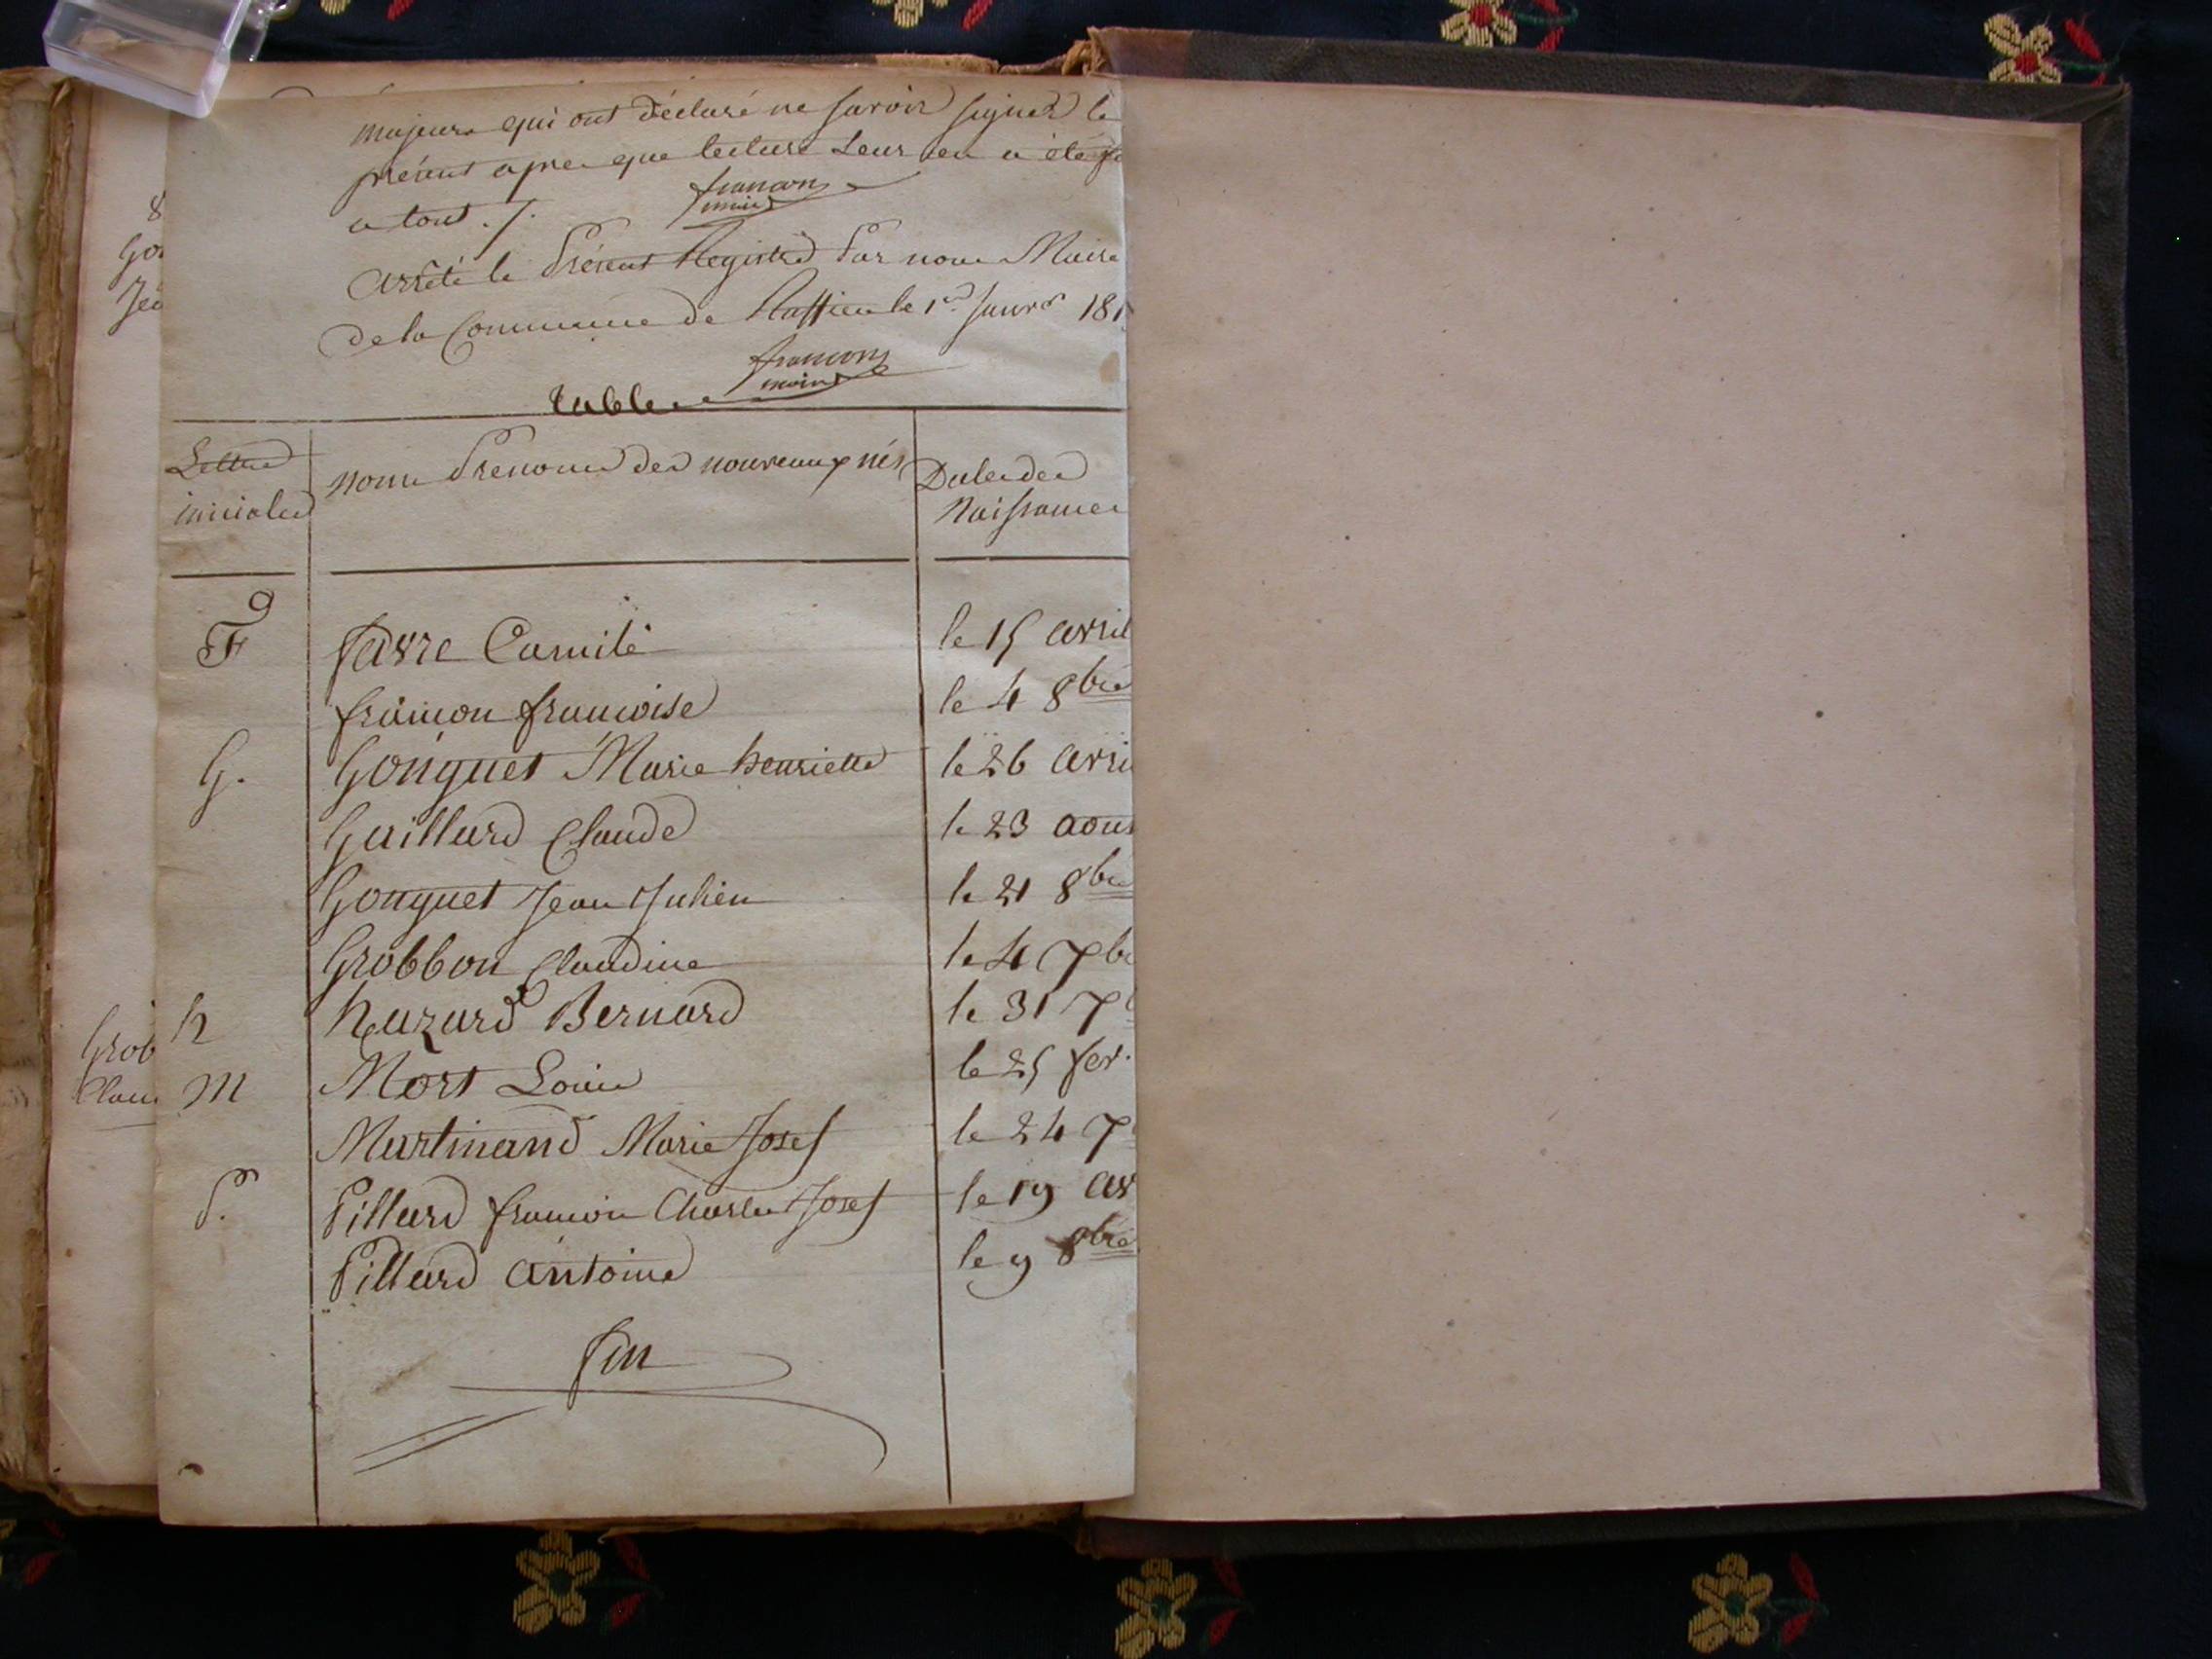 majeurs qui ont déclaré ne savoir signer le
présent apres que lecture Leur en a été fa
a tout ./.
françon
maire
Arrêté le Présent Registre Par nous Maire
de la Commune de le 1er Janvr 181
françon
maire
table
Lettres
initiales
noms Prenoms des nouveaux nés
Dates des
Naissances
F
favre Camile
le 15 avril
françon françoise
le 4 8bre
G.
Gonguet Marie henriette
le 26 avri
Gaillard Claude
le 23 aous
Gonguet Jean Julien
le 21 8bre
Grobbon Claudine
le 4 7b
h
hazard Bernard
le 31 7
M
Mort Louis
le 25 fev.
Martinand Marie Josef
le 24 7
P.
Pillard françois Charles Josef
le 19 av
Pillard Antoine
le 9 8bre
fin
8
Gon
Jea
Grob
Clau